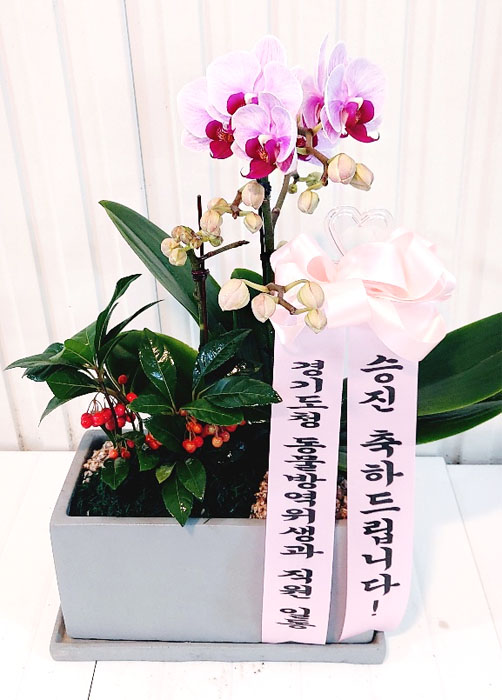 승진 축하드립니다!
경기도청 동물방역위생과 직원 일동